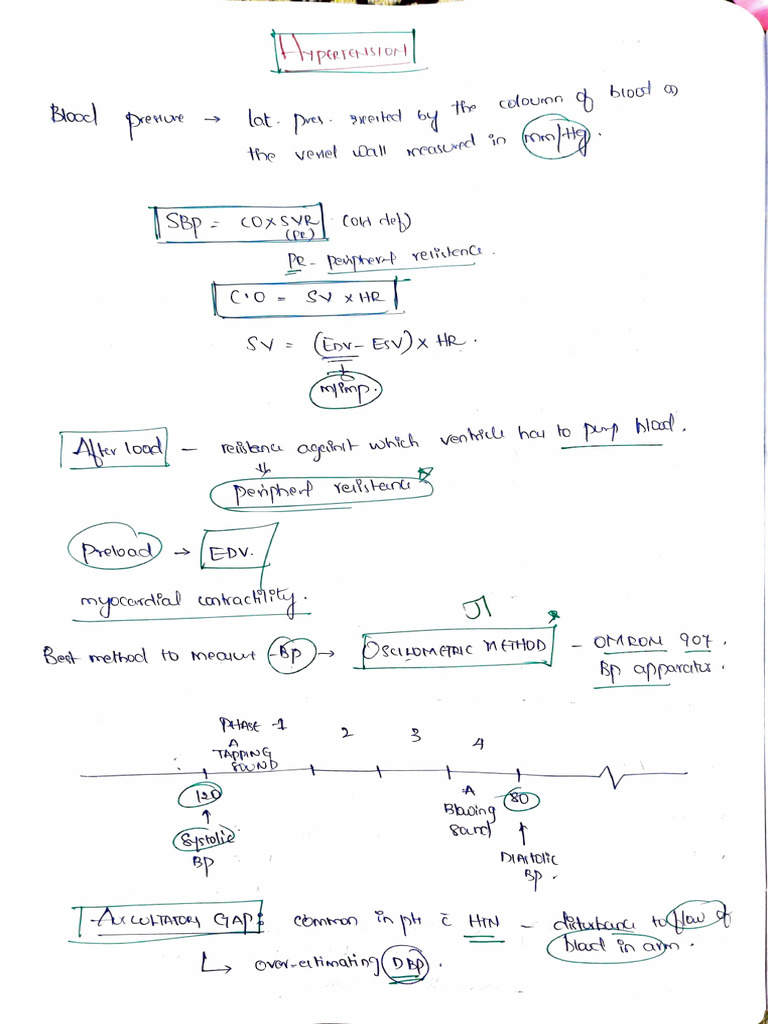 HYPERTENSION
Blood pressure → lat. pres. exerted by the coloumn of blood on
the vessel wall measured in mm/Hg.
SBP = CO x SVR (old def)
(PR)
PR - peripheral resistance.
C.O = SV x HR
SV = (EDV - ESV) x HR.
↓
m/imp.
After load - resistance against which ventricle has to pump blood.
↓
peripheral resistance
Preload → EDV.
myocardial contractility.
Best method to measure BP → OSCILOMETRIC METHOD - OMRON 907.
BP apparatus.
PHASE - 1 2 3 4
TAPPING
SOUND
120 80
Blowing
sound
↑ ↑
Systolic
BP
DIASTOLIC
BP.
AUSCULTATORY GAP: common in pts c̄ HTN - disturbance to flow of
blood in arm.
↳ over-estimating DBP.